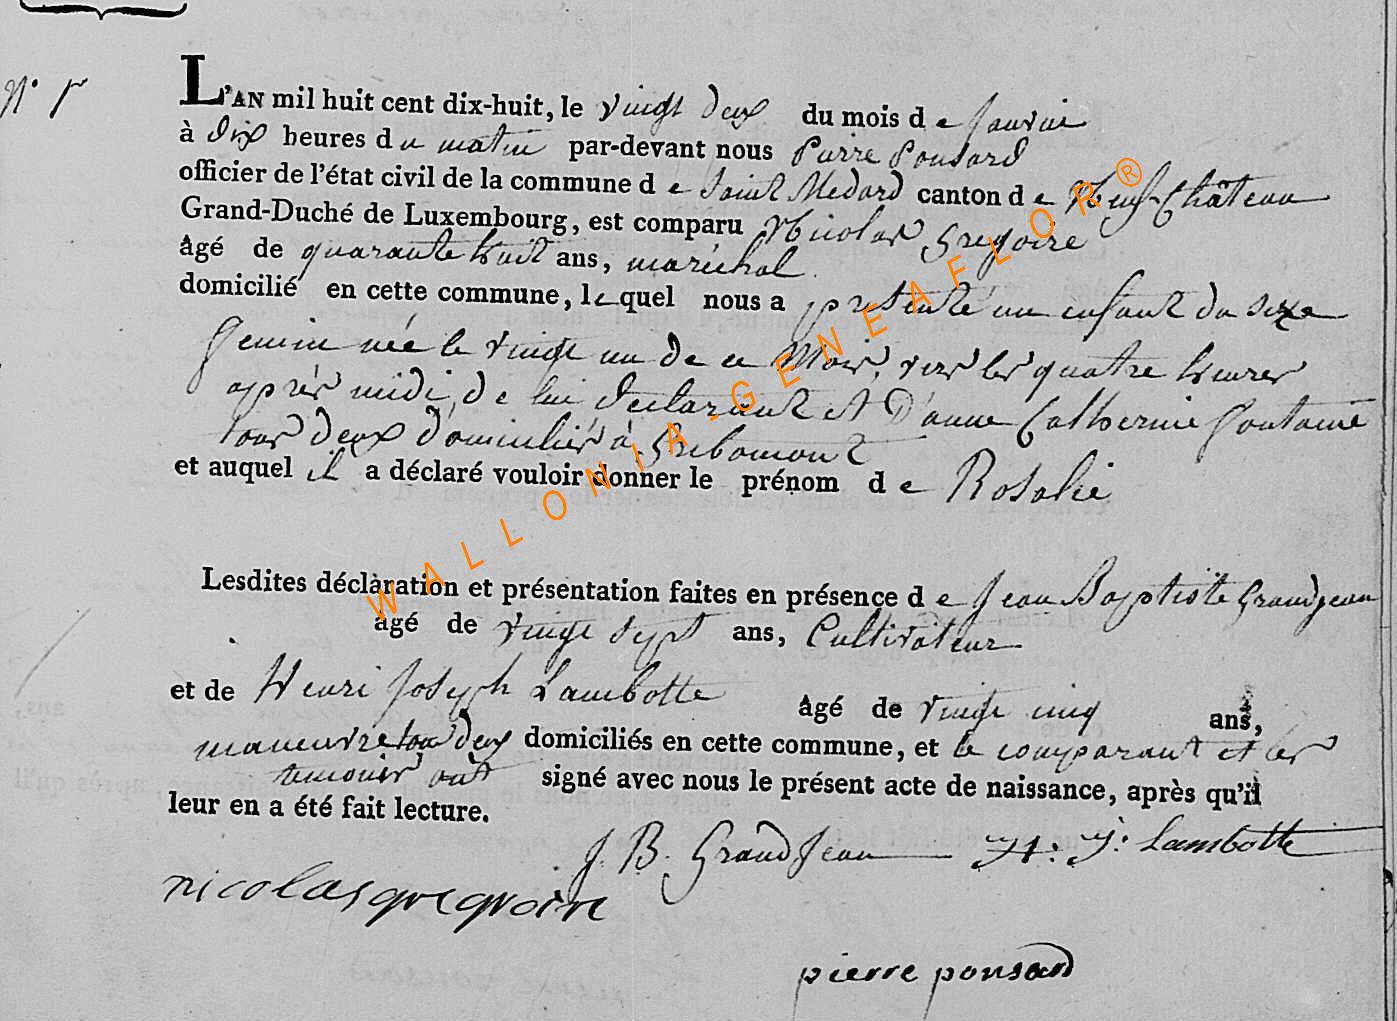 N° 1er
L'AN mil huit cent dix-huit, le vingt deux du mois de Janvier
à dix heures du matin par-devant nous Pierre Ponsard
officier de l'état civil de la commune de Saint Medard canton de Neuf-Château
Grand-Duché de Luxembourg, est comparu Nicolas Gregoire
âgé de quarante huit ans, maréchal
domicilié en cette commune, lequel nous a présenté un enfant du sexe
feminin née le vingt un de ce Mois, vers les quatre heures
après midi, de lui declarant et D'anne Catherine Fontaine
tous deux domiciliés à Gribomont
et auquel il a déclaré vouloir donner le prénom de Rosalie
Lesdites déclaration et présentation faites en présence de Jean Baptiste Grandjean
âgé de vingt sept ans, Cultivateur
et de Henri Joseph Lambotte âgé de vingt cinq ans,
manœuvre tous deux domiciliés en cette commune, et le comparant et les
temoins ont signé avec nous le présent acte de naissance, après qu'il
leur en a été fait lecture.
J. B. GrandJean H: J: Lambotte
nicolas gregoire
pierre ponsard
WALLONIA-GENEAFLOR®